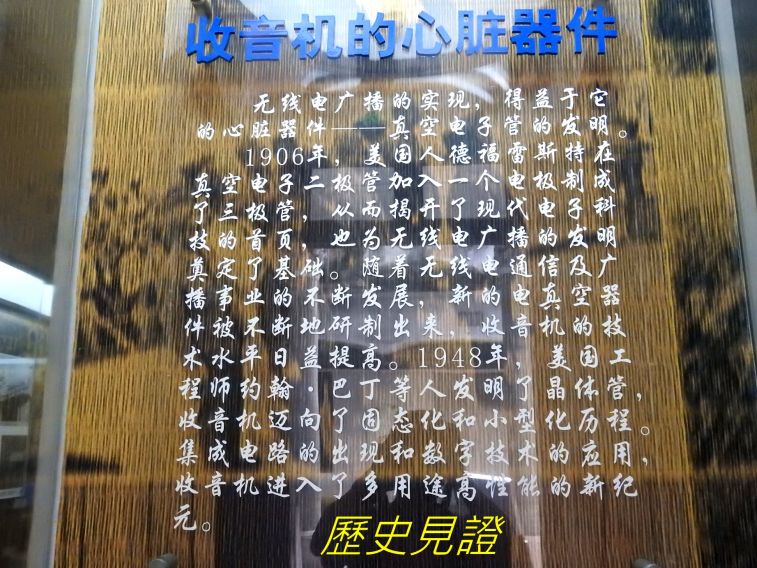 收音机的心脏器件
无线电广播的实现，得益于它
的心脏器件——真空电子管的发明。
1906年，美国人德福雷斯特在
真空电子二极管加入一个电极制成
了三极管，从而揭开了现代电子科
技的首页，也为无线电广播的发明
奠定了基础。随着无线电通信及广
播事业的不断发展，新的电真空器
件被不断地研制出来，收音机的技
术水平日益提高。1948年，美国工
程师约翰·巴丁等人发明了晶体管，
收音机迈向了固态化和小型化历程。
集成电路的出现和数字技术的应用，
收音机进入了多用途高性能的新纪
元。
歷史見證